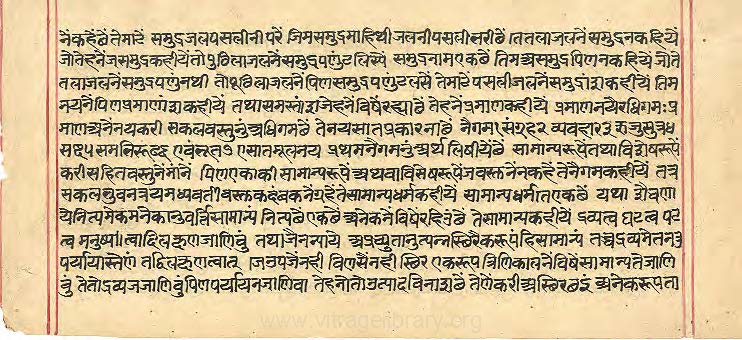 नेकहैबैतेमाटे समुद्रजलपसलीनीपरें जिमसमुद्रमाहिथीजलनीपसलीभरीबे तितलाजलनें समुद्रनकहियें
जोतेहनेंजसमुद्रकहीयेंतो पुठिलाजलनें समुद्रपणुंटलिस्यें समुद्रनामएकबें तिमअसमुद्रपिणनकहियें जोते
तलाजलनेंसमुद्रपणुंनथी तोपुठिलाजलनें पिणसमुद्रपणुंटलसें तेमाटेपसलीजलनेंसमुद्रांशकहीयें तिम
नयनेपिणप्रमाणांशकहीयें तथासमस्तांशजेहनेंविषेंरह्याबें तेहनेंप्रमाणकहीयें प्रमाणनयैरधिगमः प्र
माणअनेनयकरी सकलवस्तुनुंअधिगमबें तेनयसातप्रकारनाबें नैगम१संग्रह२ व्यवहार३ ऋजुसूत्र४
शब्द५समभिरूढ६ एवंभूत७ एसातमूलनय प्रथमनैगमनुंअर्थ लिषीयेंबें सामान्यरूपेंतथाविशेषरूपें
करीसहितवस्तुनेंमानें पिणएकाकी सामान्यरूपें अथवाविसेषरूपेंजवस्तनेंनकहेंतेनैगमकहीयें तत्र
सकलभुवनत्रयमध्यवर्ती वस्तकदंबकनेंग्रहेंतेसामान्यधर्मकहीयें सामान्यधर्मतेएकबें यथा
येनित्यमेकमनेकानुवर्त्तिसामान्यं नित्यबें एकबें अनेकनेविषेंरहितबें तेसामान्यकहीयें द्रव्यत्व घटत्व पट
त्व मनुष्य त्वादिलक्षणजाणिवुं तथाजैननयें अप्रच्युतानुत्पन्नस्थिरैकरूपंहिसामान्यं तच्चद्रव्यमेवनतु
पर्यायास्तेणं तद्विलक्षणत्वात् जिउपजेनही विणसैनही स्थिर एकरूप त्रिणिकालनेविषेंसामान्यतेजाणि
वुं तेतोद्रव्यजजाणिवुं पिणपर्यायनजाणिवा तेहनोतोउत्पादविनाशबें तेणेंकरीअस्थिरबइं अनेकरूपता
www.vitragelibrary.org